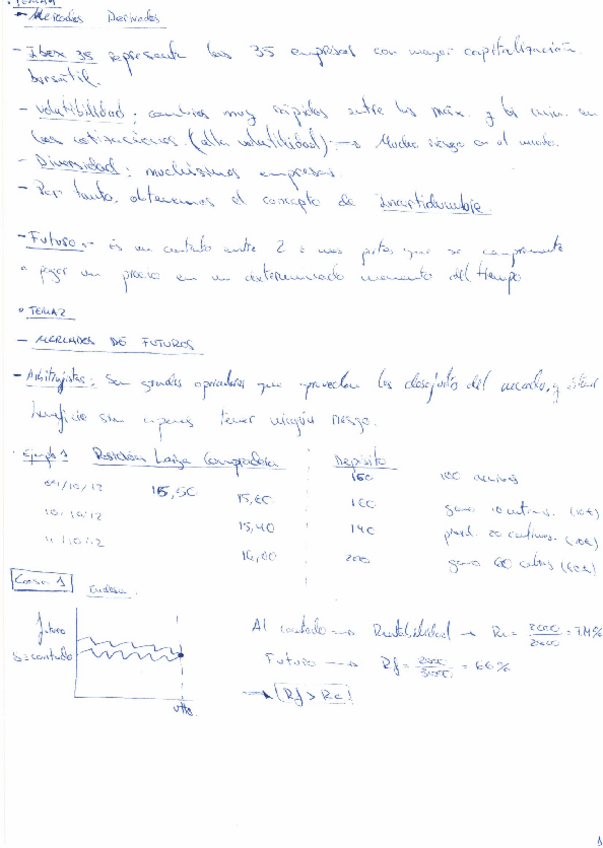 • TEMA 1
- Mercados Derivados
- Ibex 35 representa las 35 empresas con mayor capitalización
bursátil.
- Volatibilidad: cambios muy rápidos entre los máx. y los mín. en
las cotizaciones (alta volatilidad) → Mucho riesgo en el
- Diversidad: muchísimas empresas.
- Por tanto, obtenemos el concepto de Incertidumbre.
- Futuro: es un contrato entre 2 o más partes que se compromete
a pagar un precio en un determinado momento del tiempo
• TEMA 2
- MERCADOS DE FUTUROS
- Arbitrajistas: Son grandes operadores que aprovechan los desajustes del mercado, y
beneficio sin apenas tener ningún riesgo.
Ejemplo 1 Posición Larga Compradora Depósito
/10/12 15,50 150 100 acciones
10/10/12 15,60 160 gano 10 (10€)
11/10/12 15,40 140 20 céntimos.
16,00 200 gano 60 (60€)
Caso 1
futuro
contado
vto.
Al contado → Rentabilidad → Rc =
Futuro → Rf = = 66%
→ (Rf > Rc)
1